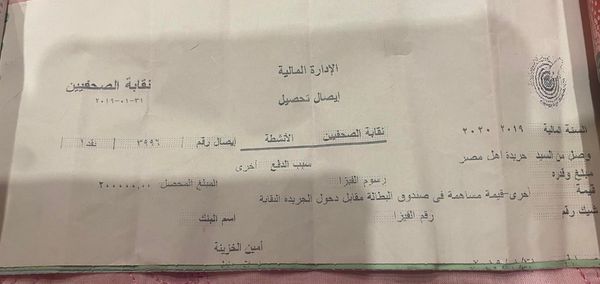 الإدارة المالية
نقابة الصحفيين
إيصال تحصيل
٢٠١٩-٠١-٣١
السنة المالية ٢٠١٩ ٢٠٢٠ نقابة الصحفيين الأنشطة إيصال رقم ٣٩٩٦ نقدا
وصل من السيد جريدة أهل مصر سبب الدفع أخرى
مبلغ وقدره رسوم الفيزا المبلغ المحصل ٢٠٠٠٠٠,٠٠
قيمة أخرى-قيمة مساهمة فى صندوق البطالة مقابل دخول الجريده النقابة
شيك رقم رقم الفيزا اسم البنك
أمين الخزينة